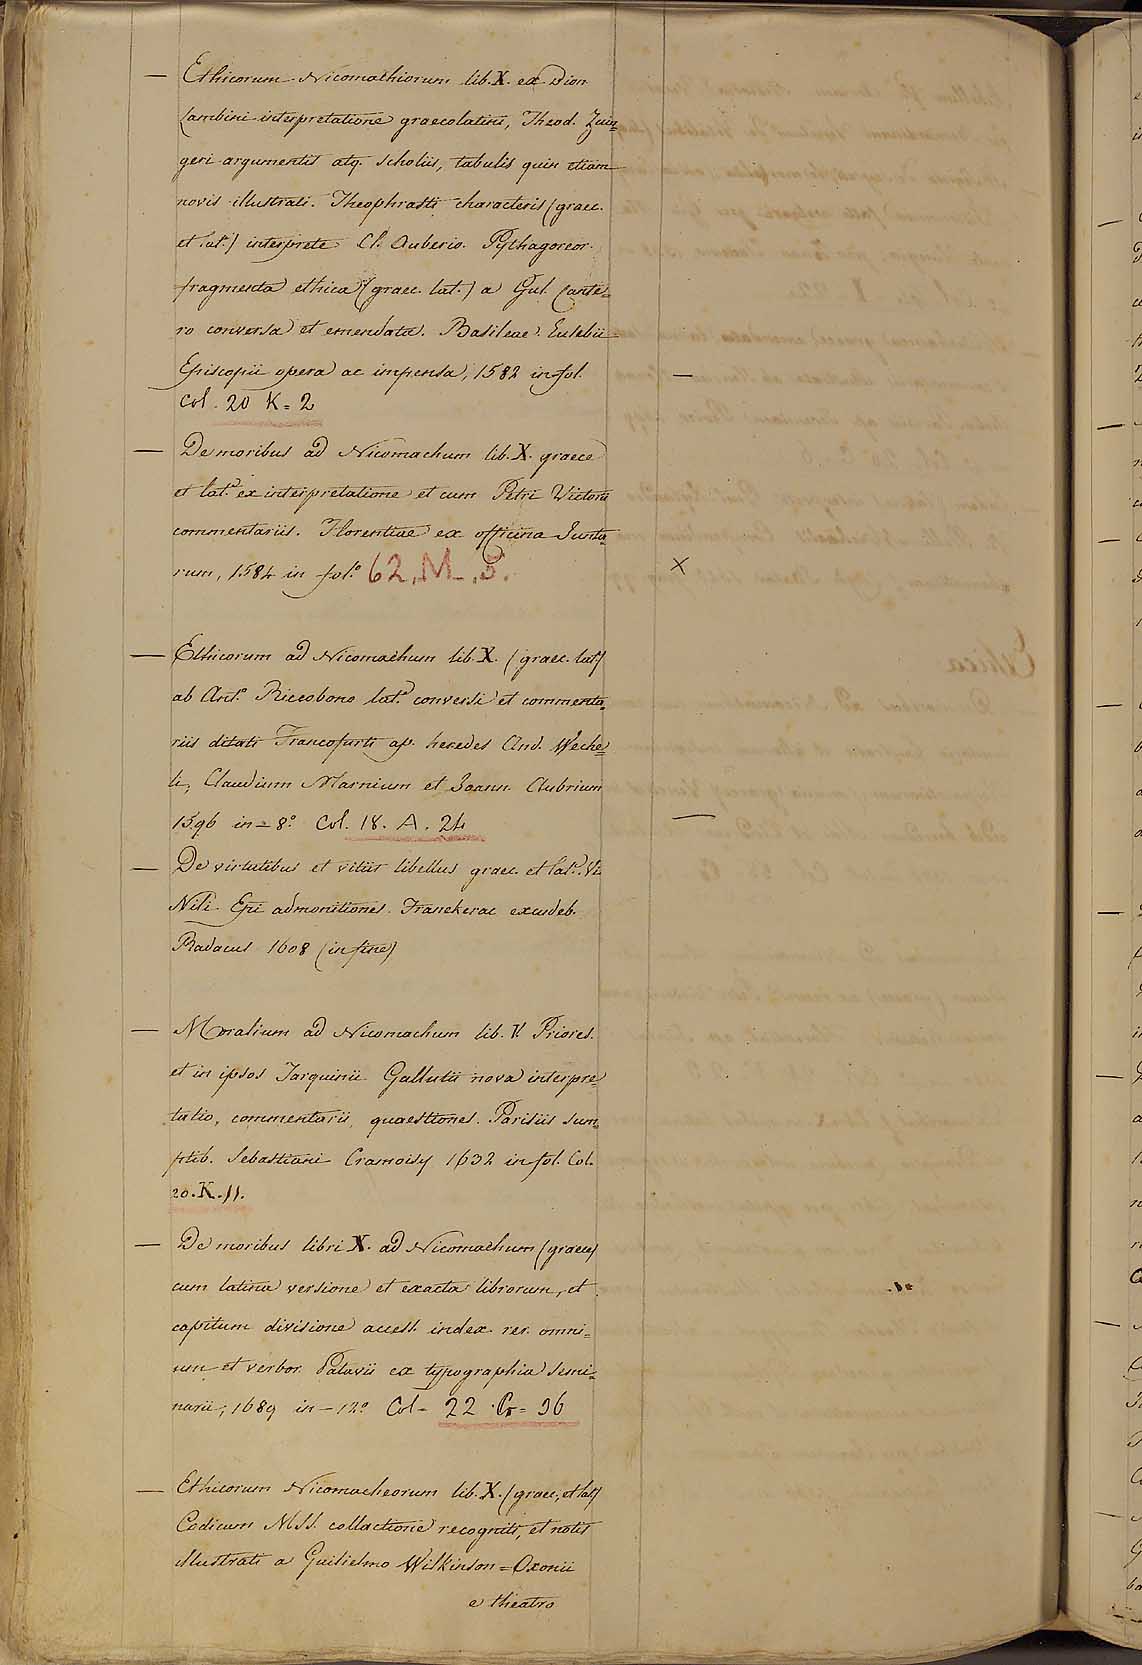 — Ethicorum Nicomachiorum lib. X. ex Dion
Lambini interpretatione graecolatini, Theod. Zuin-
geri argumentis atq. scholiis, tabulis quin etiam
novis illustrati. Theophrasti characteris (graec.
et lat.) interprete Cl. Auberio. Pythagoreor.
fragmenta ethica (graec. lat.) a Gul. Cante-
ro conversa et emendata. Basileae. Eusebii
Episcopii opera ac impensa, 1582 in fol. —
Col. 20 K = 2
— De moribus ad Nicomachum lib. X. graece
et lat.e ex interpretatione et cum Petri Victorii
commentariis. Florentiae ex officina Junta-
rum, 1584 in fol.o 62. M. 5. ×
— Ethicorum ad Nicomachum lib. X. (graec. lat.)
ab Ant.o Riccobono lat.e conversi et commenta-
riis ditati Francofurti ap. heredes And. Weche-
li, Claudium Marnium et Joann. Aubrium
1596 in = 8.o Col. 18. A. 24 —
— De virtutibus et vitiis libellus graec. et lat.e V.
Nili Epi admonitiones. Franekerae excudeb.
Radaeus 1608 (in fine)
— Moralium ad Nicomachum lib. V. Priores.
et in ipsos Tarquinii Gallutii nova interpre-
tatio, commentarii, quaestiones. Parisiis sum-
ptib. Sebastiani Cramoisy 1632 in fol. Col.
20. K. 11.
— De moribus libri X. ad Nicomachum (graece)
cum latina versione et exacta librorum, et
capitum divisione access. index. rer. omni-
um et verbor. Patavii ex typographia Semi-
narii, 1689 in = 12.o Col = 22 G = 36
— Ethicorum Nicomacheorum lib. X. (graec. et lat.)
Codicum MSS. collactione recogniti, et notis
illustrati a Guilielmo Wilkinson = Oxonii
e theatro